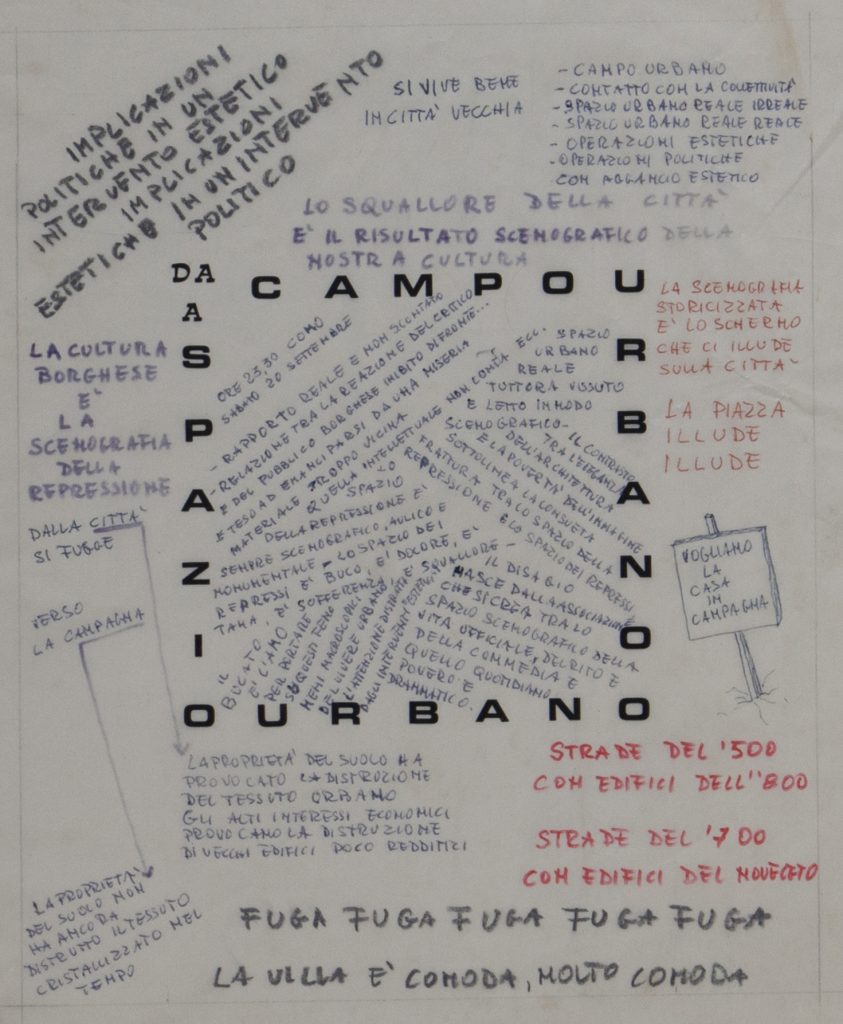 IMPLICAZIONI
POLITICHE IN UN
INTERVENTO ESTETICO
IMPLICAZIONI
ESTETICHE IN UN INTERVENTO
POLITICO
SI VIVE BENE
IN CITTÀ VECCHIA
- CAMPO URBANO
- CONTATTO CON LA COLLETTIVITÀ
- SPAZIO URBANO REALE IRREALE
- SPAZIO URBANO REALE REALE
- OPERAZIONI ESTETICHE
- OPERAZIONI POLITICHE
CON AGGANCIO ESTETICO
LO SQUALLORE DELLA CITTA'
E' IL RISULTATO SCENOGRAFICO DELLA
NOSTRA CULTURA
DA A CAMPO URBANO
A SPAZIO URBANO
LA CULTURA
BORGHESE
E'
LA
SCENOGRAFIA
DELLA
REPRESSIONE
LA SCENOGRAFIA
STORICIZZATA
E' LO SCHERMO
CHE CI ILLUDE
SULLA CITTA'
LA PIAZZA
ILLUDE
ILLUDE
ORE 23,30 COMO
SABATO 20 SETTEMBRE
- RAPPORTO REALE E NON SCONTATO
- RELAZIONE TRA LA REAZIONE DEL CRITICO
E DEL PUBBLICO BORGHESE INIBITO DI FRONTE...
E TESO AD EMANCIPARSI DA UNA MISERIA
MATERIALE TROPPO VICINA
QUELLA INTELLETTUALE NON CONTA ECC.
LO SPAZIO
DELLA REPRESSIONE E'
SEMPRE SCENOGRAFICO, AULICO E
MONUMENTALE - LO SPAZIO DEI
REPRESSI E' BUCO, E' DOLORE, E'
TANA, E' SOFFERENZA E' SQUALLORE -
SPAZIO
URBANO
REALE
TUTTORA VISSUTO
E LETTO IN MODO
SCENOGRAFICO -
IL CONTRASTO
TRA L'ELEGANZA
DELL'ARCHITETTURA
E LA POVERTA' DELL'IMMAGINE
SOTTOLINEA LA CONSUETA
FRATTURA TRA LO SPAZIO DELLA
REPRESSIONE E LO SPAZIO DEI REPRESSI
IL DISAGIO
NASCE DALLA ASSOCIAZIONE
CHE SI CREA TRA LO
SPAZIO SCENOGRAFICO DELLA
VITA UFFICIALE, DEL RITO E
DELLA COMMEDIA E
QUELLO QUOTIDIANO
POVERO E
DRAMMATICO.
IL
BUCATO
E' L'AMO
PER PORTARE
SU QUESTI FENO
MENI MACROSCOPICI
DEL VIVERE URBANO
L'ATTENZIONE DISTRATTA
DAGLI INTERVENTI ESTETICI
DALLA CITTA'
SI FUGGE
VERSO
LA CAMPAGNA
VOGLIAMO
LA
CASA
IN
CAMPAGNA
LA PROPRIETA' DEL SUOLO HA
PROVOCATO LA DISTRUZIONE
DEL TESSUTO URBANO
GLI ALTI INTERESSI ECONOMICI
PROVOCANO LA DISTRUZIONE
DI VECCHI EDIFICI POCO REDDITIZI
STRADE DEL '500
CON EDIFICI DELL''800
STRADE DEL '700
CON EDIFICI DEL NOVECETO
LA PROPRIETA'
DEL SUOLO NON
HA ANCORA
DISTRUTTO IL TESSUTO
CRISTALLIZZATO NEL
TEMPO
FUGA FUGA FUGA FUGA FUGA
LA VILLA E' COMODA, MOLTO COMODA